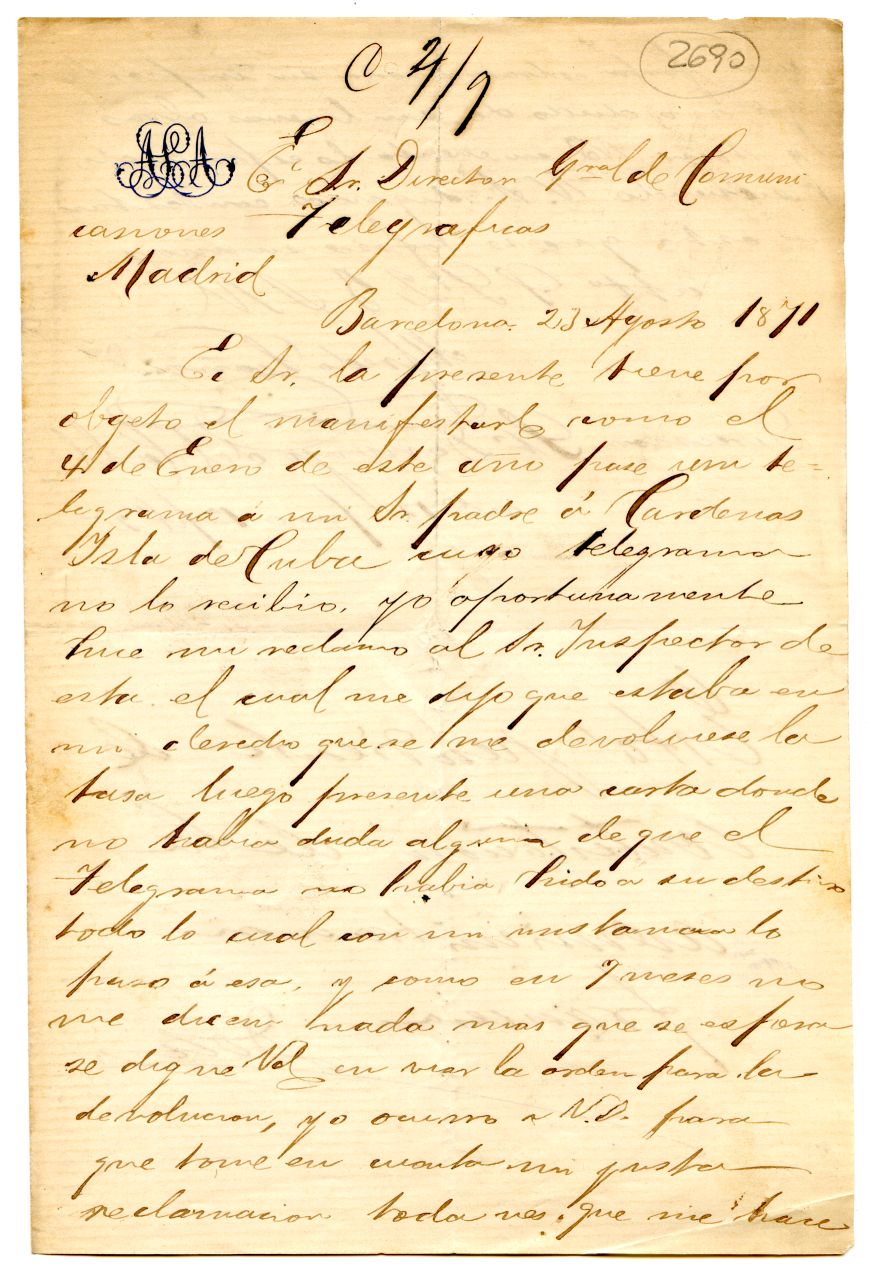 C 4/9
2690
ALA
E. Sr. Director Gral de Comuni
caciones Telegraficas
Madrid
Barcelona 23 Agosto 1871
E. Sr. la presente tiene por
obgeto el manifestarle como el
4 de Enero de este año pase un te=
legrama á mi Sr. padre á Cardenas
Isla de Cuba cuyo telegrama
no lo recibio, yo oportunamente
hice mi reclamo al Sr. Inspector de
esta el cual me dijo que estaba en
mi derecho que se me devolviese la
tasa luego presente una carta donde
no habia duda alguna de que el
Telegrama no habia hido a su destino
todo lo cual con mi instancia lo
paso á esa, y como en 7 meses no
me dicen nada mas que se espera
se digne Vd en viar la orden para la
devolucion, yo ocurro a V.D. para
que tome en cuenta mi justa
reclamacion toda ves que me hace